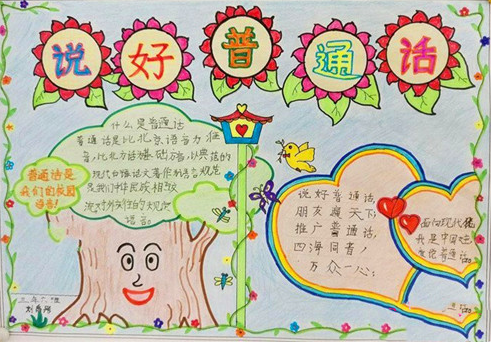 说好普通话
什么是普通话
普通话是以北京语音为标
音，以北方话为基础方言，以典范的
现代白话文著作为语法规范
是我们中华民族相互
流对外交往的规范
语言。
普通话是
我们的校园
语言！
说好普通话，
朋友遍天下
推广普通话，
四海同音！
万众一心；
面向现代化
我是中国娃
爱说普通话。